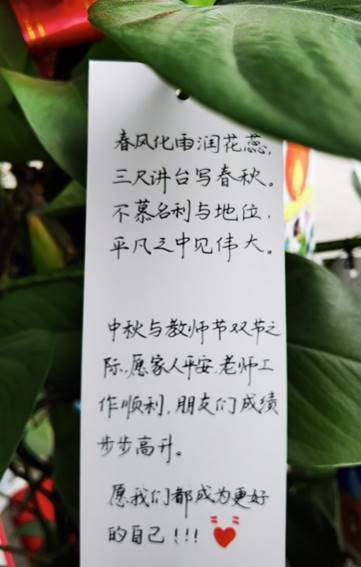 春风化雨润花蕊,
三尺讲台写春秋。
不慕名利与地位,
平凡之中见伟大。
中秋与教师节双节之
际,愿家人平安,老师工
作顺利,朋友们成绩
步步高升。
愿我们都成为更好
的自己!!!